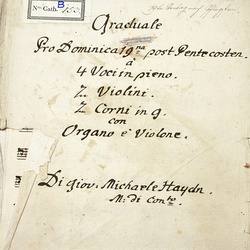 Nro Cath. B
Graduale
Pro Dominica 19na post Pentecosten.
à
4 Voci in pieno.
2 Violini.
2 Corni in g.
con
Organo è Violone.
Di giov. Michaele Haydn.
M: di Conto.